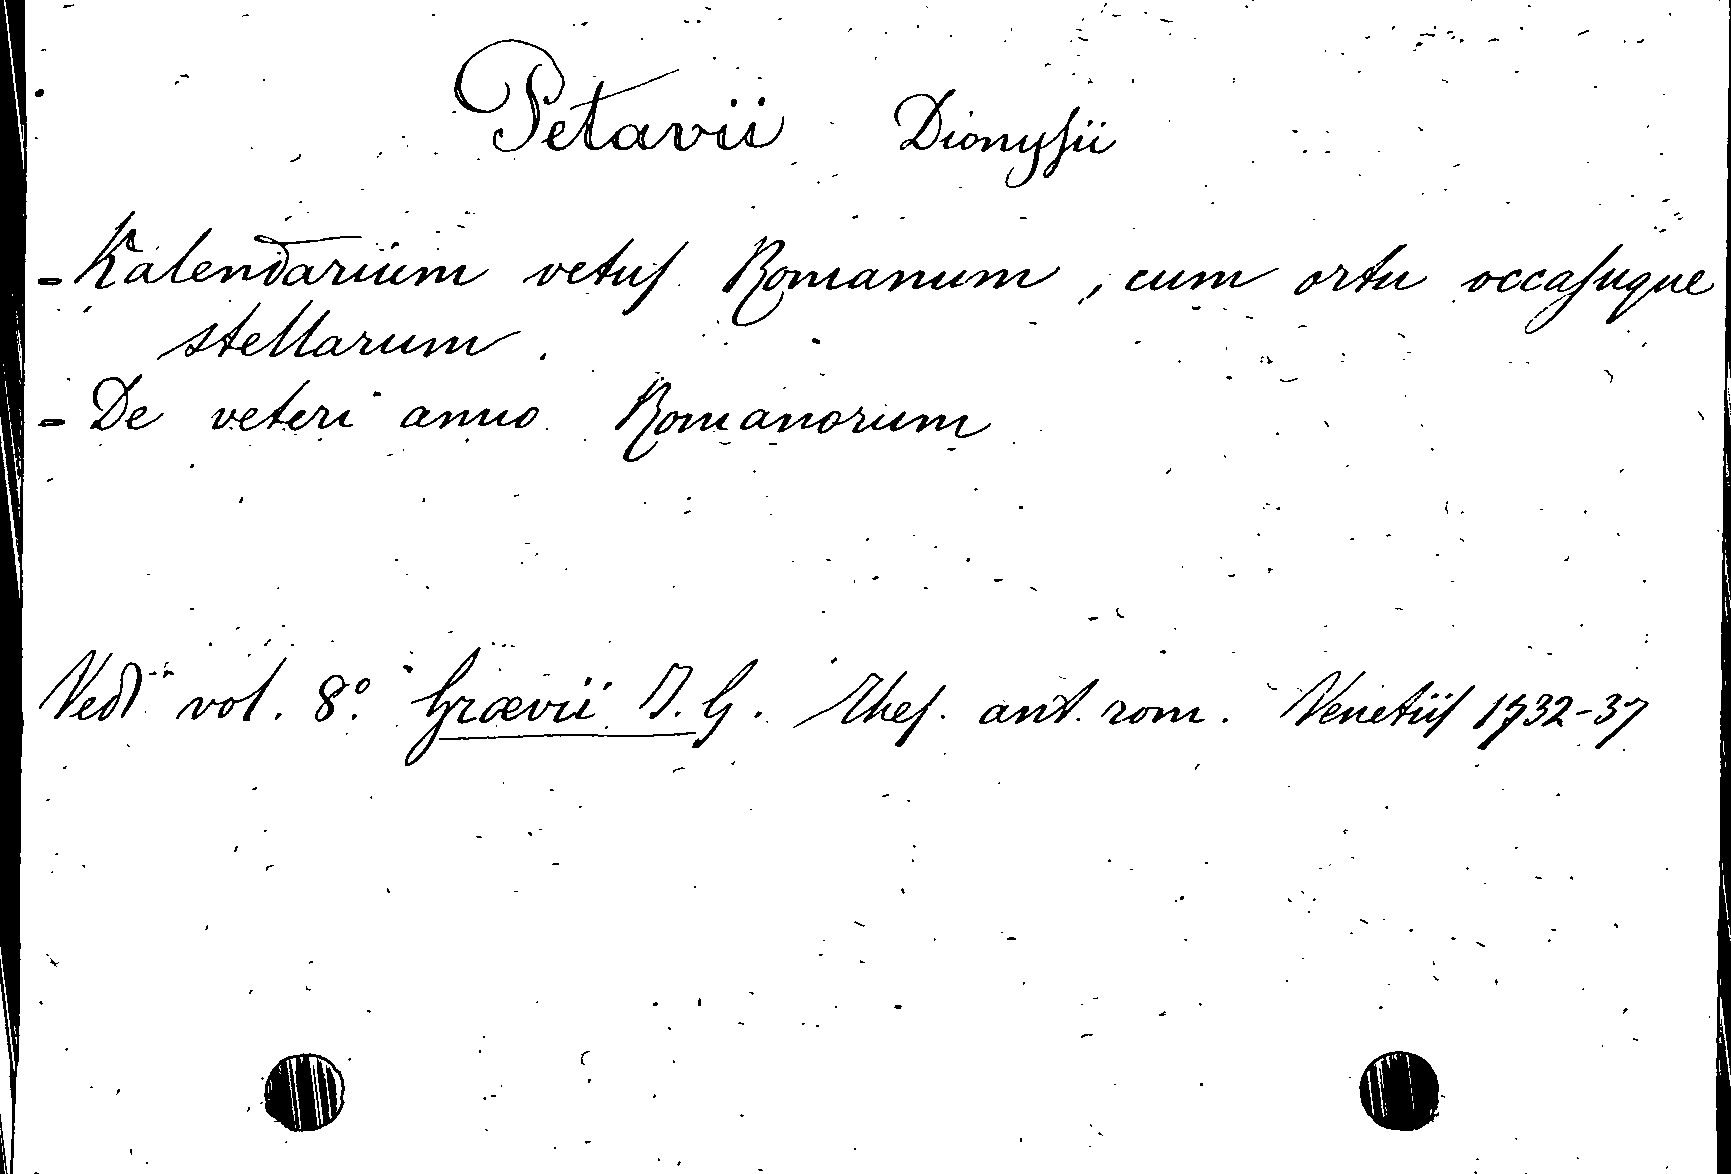 Petavii Dionysii
- Kalendarium vetus Romanum, cum ortu occasuque
stellarum.
- De veteri anno Romanorum
Vedi vol. 8.° Grævii J. G. Thes. ant. rom. Venetiis 1732-37